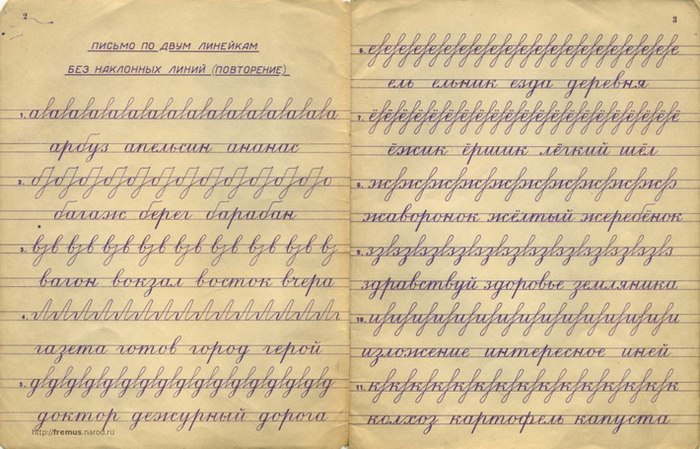 2
ПИСЬМО ПО ДВУМ ЛИНЕЙКАМ
БЕЗ НАКЛОННЫХ ЛИНИЙ (ПОВТОРЕНИЕ)
1.
арбуз апельсин ананас
2.
багаж берег барабан
3.
вагон вокзал восток вчера
4.
газета готов город герой
5.
доктор дежурный дорога
http://fremus.narod.ru
3
6.
ель ельник езда деревня
7.
ёжик ёршик лёгкий шёл
8.
жаворонок жёлтый жеребёнок
9.
здравствуй здоровье земляника
10.
изложение интересное иней
11.
колхоз картофель капуста